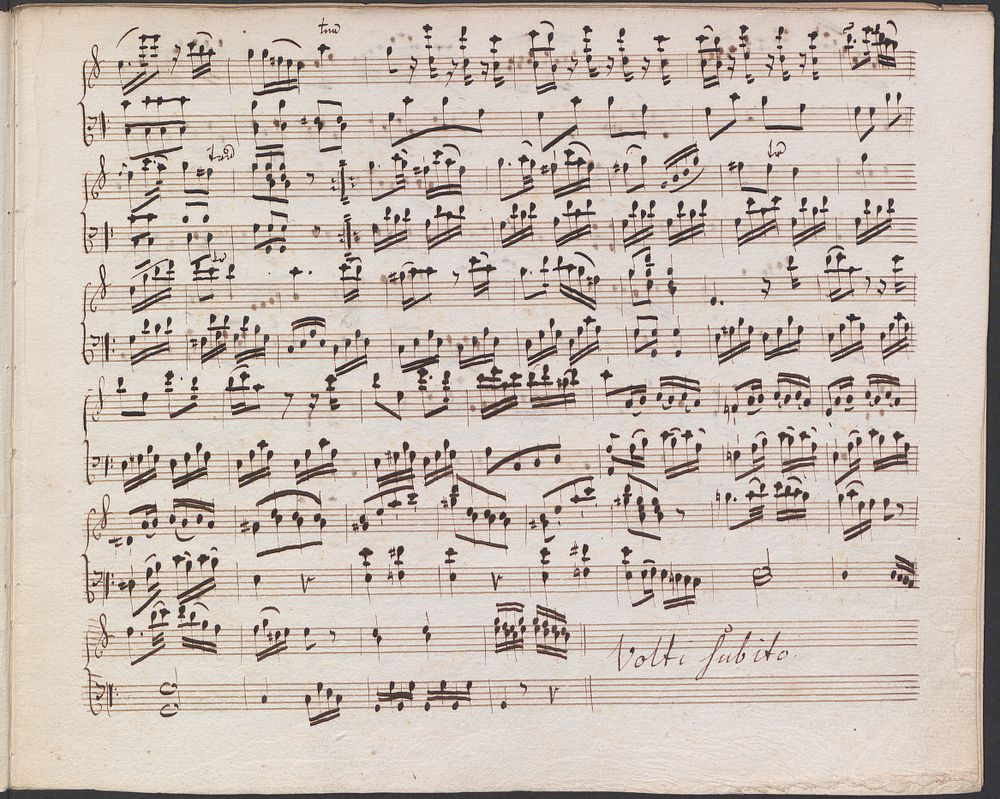 tr
tr
tr
tr
Volti subito.